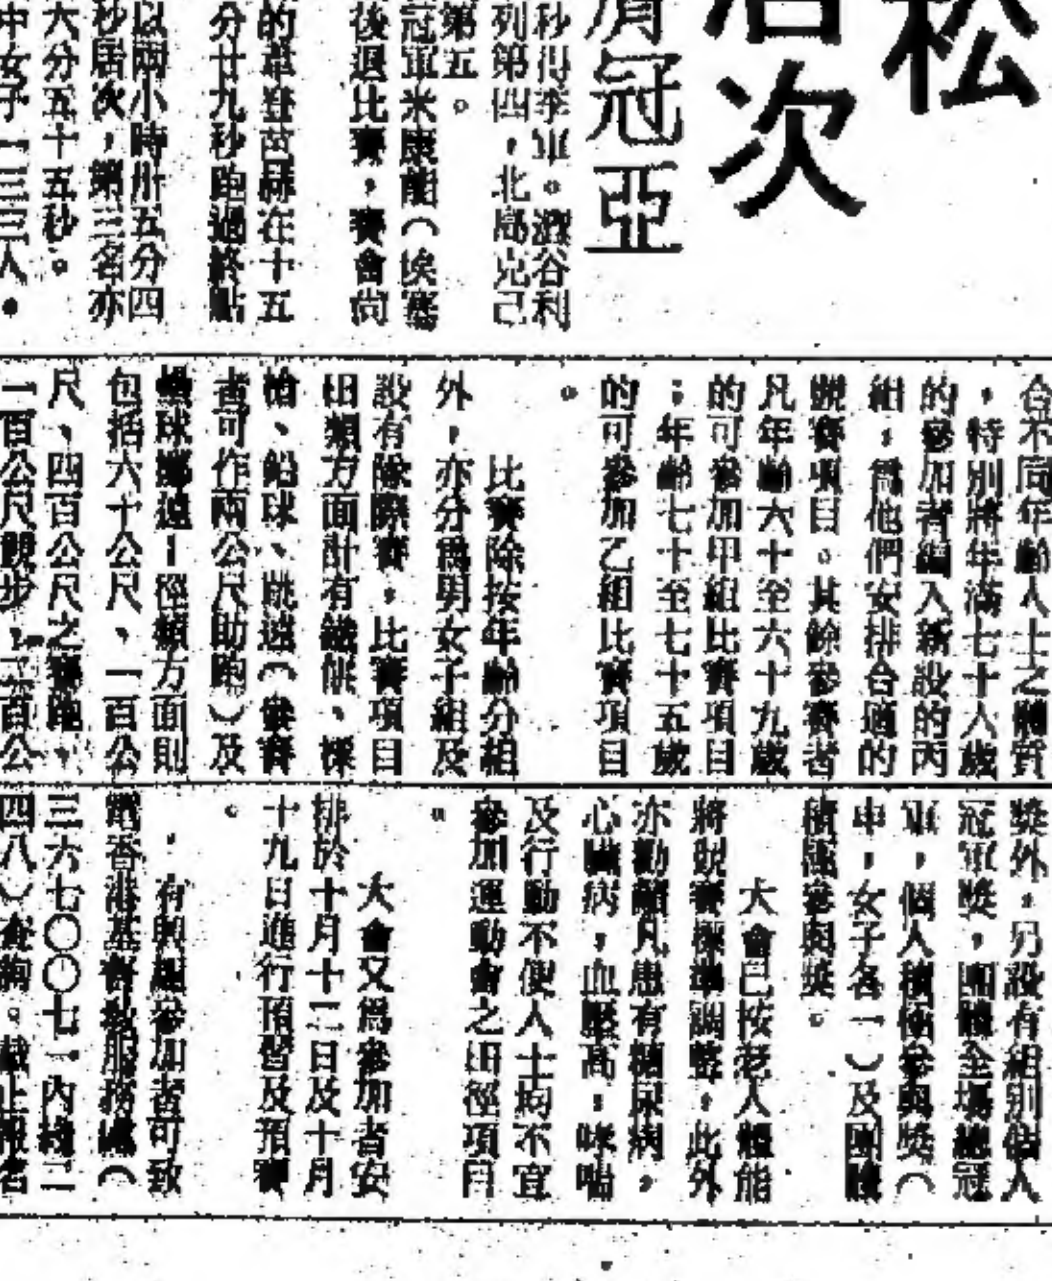 松
居次
冠亞
秒得季軍。澀谷利
列第四，北島克己
第五。
冠軍米康能（埃塞
後退比賽，賽會尚
的韋登茁赫在十五
分廿九秒跑過終點
以兩小時卅五分四
秒居次，第三名亦
六分五十五秒。
中女子一三三人，
合不同年齡人士之體質
，特別將年滿七十六歲
的參加者編入新設的丙
組，為他們安排合適的
競賽項目。其餘參賽者
凡年齡六十至六十九歲
的可參加甲組比賽項目
；年齡七十至七十五歲
的可參加乙組比賽項目
。
比賽除按年齡分組
外，亦分為男女子組及
設有隊際賽，比賽項目
田類方面計有鐵餅、標
槍、鉛球、跳遠（參賽
者可作兩公尺助跑）及
壘球擲遠；徑類方面則
包括六十公尺、一百公
尺、四百公尺之賽跑、
二百公尺競步，百公
獎外，另設有組別個人
冠軍獎，團體全場總冠
軍，個人積極參與獎（
中，女子各一）及團體
積極參與獎。
大會已按老人體能
將競賽標準調整，此外
亦勸籲凡患有糖尿病，
心臟病，血壓高，哮喘
及行動不便人士均不宜
參加運動會之田徑項目
。
大會又為參加者安
排於十月十二日及十月
十九日進行預習及預賽
。
有興趣參加者可致
電香港基督教服務處（
三六七〇〇七一內線二
四八）查詢。截止報名